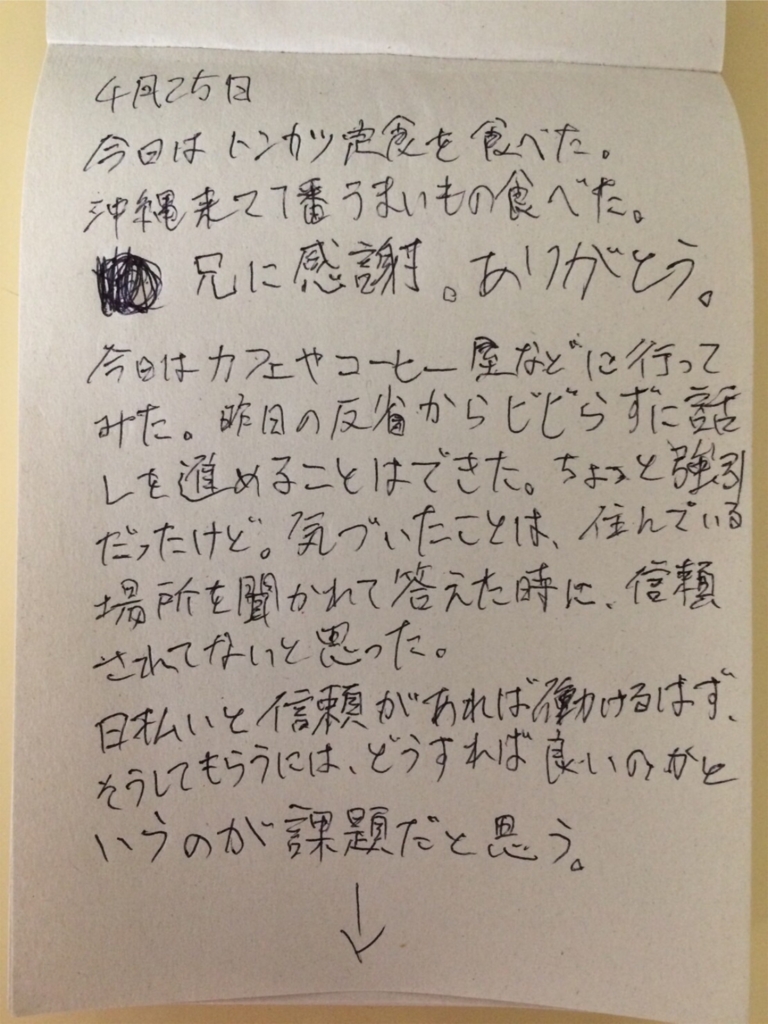 4月25日
今日はトンカツ定食を食べた。
沖縄来て1番うまいもの食べた。
兄に感謝。ありがとう。
今日はカフェやコーヒー屋などに行って
みた。昨日の反省からビビらずに話
しを進めることはできた。ちょっと強引
だったけど。気づいたことは、住んでいる
場所を聞かれて答えた時に、信頼
されてないと思った。
日払いと信頼があれば働けるはず、
そうしてもらうには、どうすれば良いのかと
いうのが課題だと思う。
↓